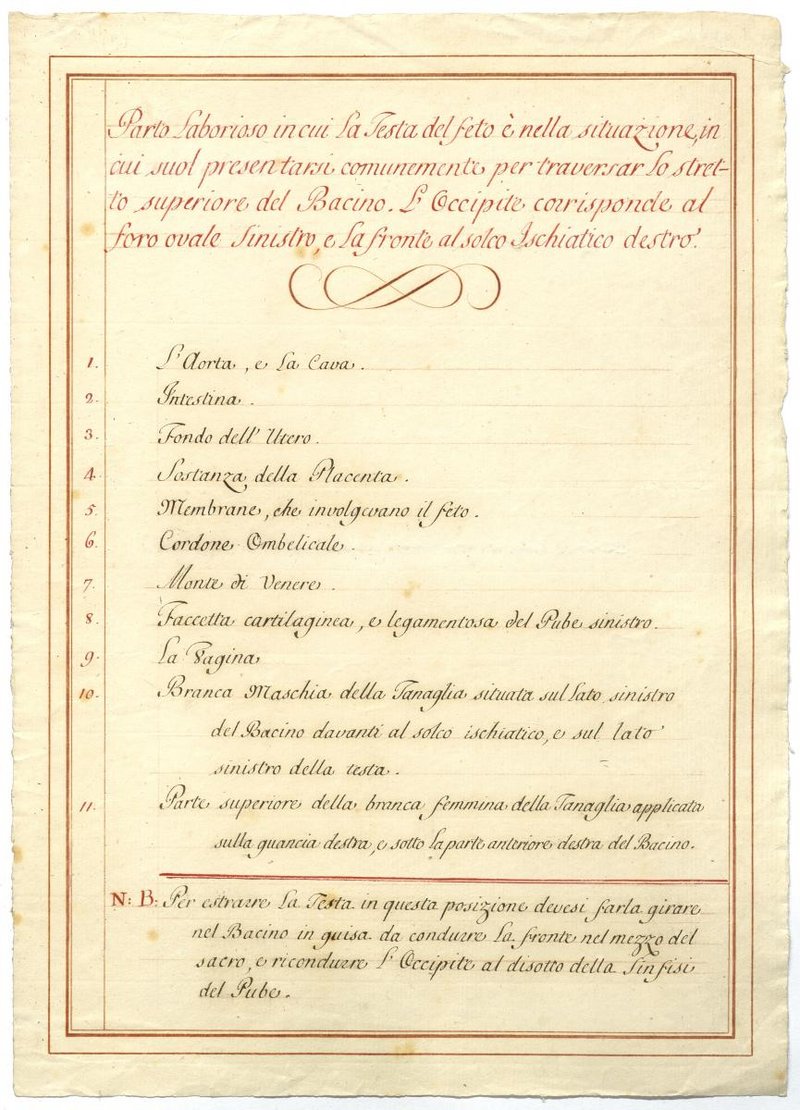 Parto Laborioso in cui La Testa del feto è nella situazione, in
cui suol presentarsi comunemente per traversar Lo stret-
to superiore del Bacino. L'Occipite corrisponde al
foro ovale Sinistro, e La fronte al solco Ischiatico destro.
1. L'Aorta, e La Cava.
2. Intestina.
3. Fondo dell'Utero.
4. Sostanza della Placenta.
5. Membrane, che involgevano il feto.
6. Cordone Ombelicale.
7. Monte di Venere.
8. Faccetta cartilaginea, e legamentosa del Pube sinistro.
9. La Vagina
10. Branca Maschia della Tanaglia situata sul Lato sinistro
del Bacino davanti al solco ischiatico, e sul lato
sinistro della testa.
11. Parte superiore della branca femmina della Tanaglia applicata
sulla guancia destra, e sotto la parte anteriore destra del Bacino.
N: B: Per estrarre La Testa in questa posizione devesi farla girare
nel Bacino in guisa da condurre La fronte nel mezzo del
sacro, e ricondurre L'Occipite al disotto della Sinfisi
del Pube.